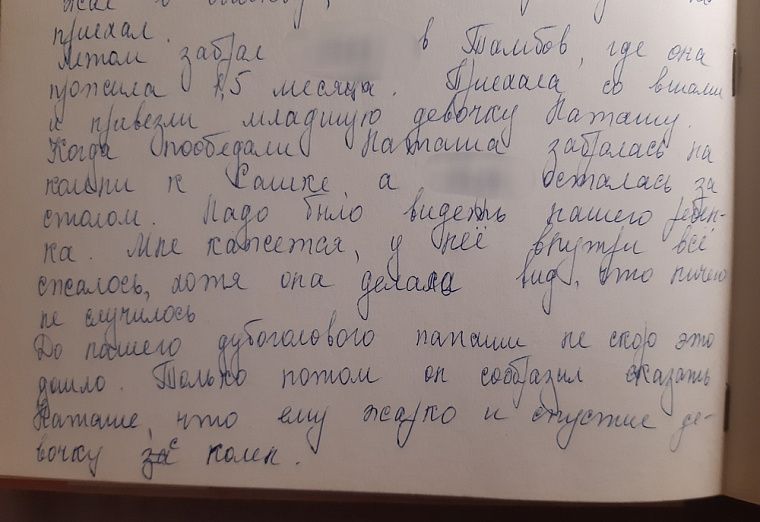 приехал.
Летом забрал в Тамбов, где она
прожила 1,5 месяца. Приехала со вшами
и привезли младшую девочку Наташу.
Когда пообедали Наташа забралась на
колени к Сашке, а осталась за
столом. Надо было видеть нашего ребён-
ка. Мне кажется, у неё внутри всё
сжалось, хотя она делала вид, что ничего
не случилось
До нашего дубоголового папаши не скоро это
дошло. Только потом он сообразил сказать
Наташе, что ему жарко и спустил де-
вочку с колен.